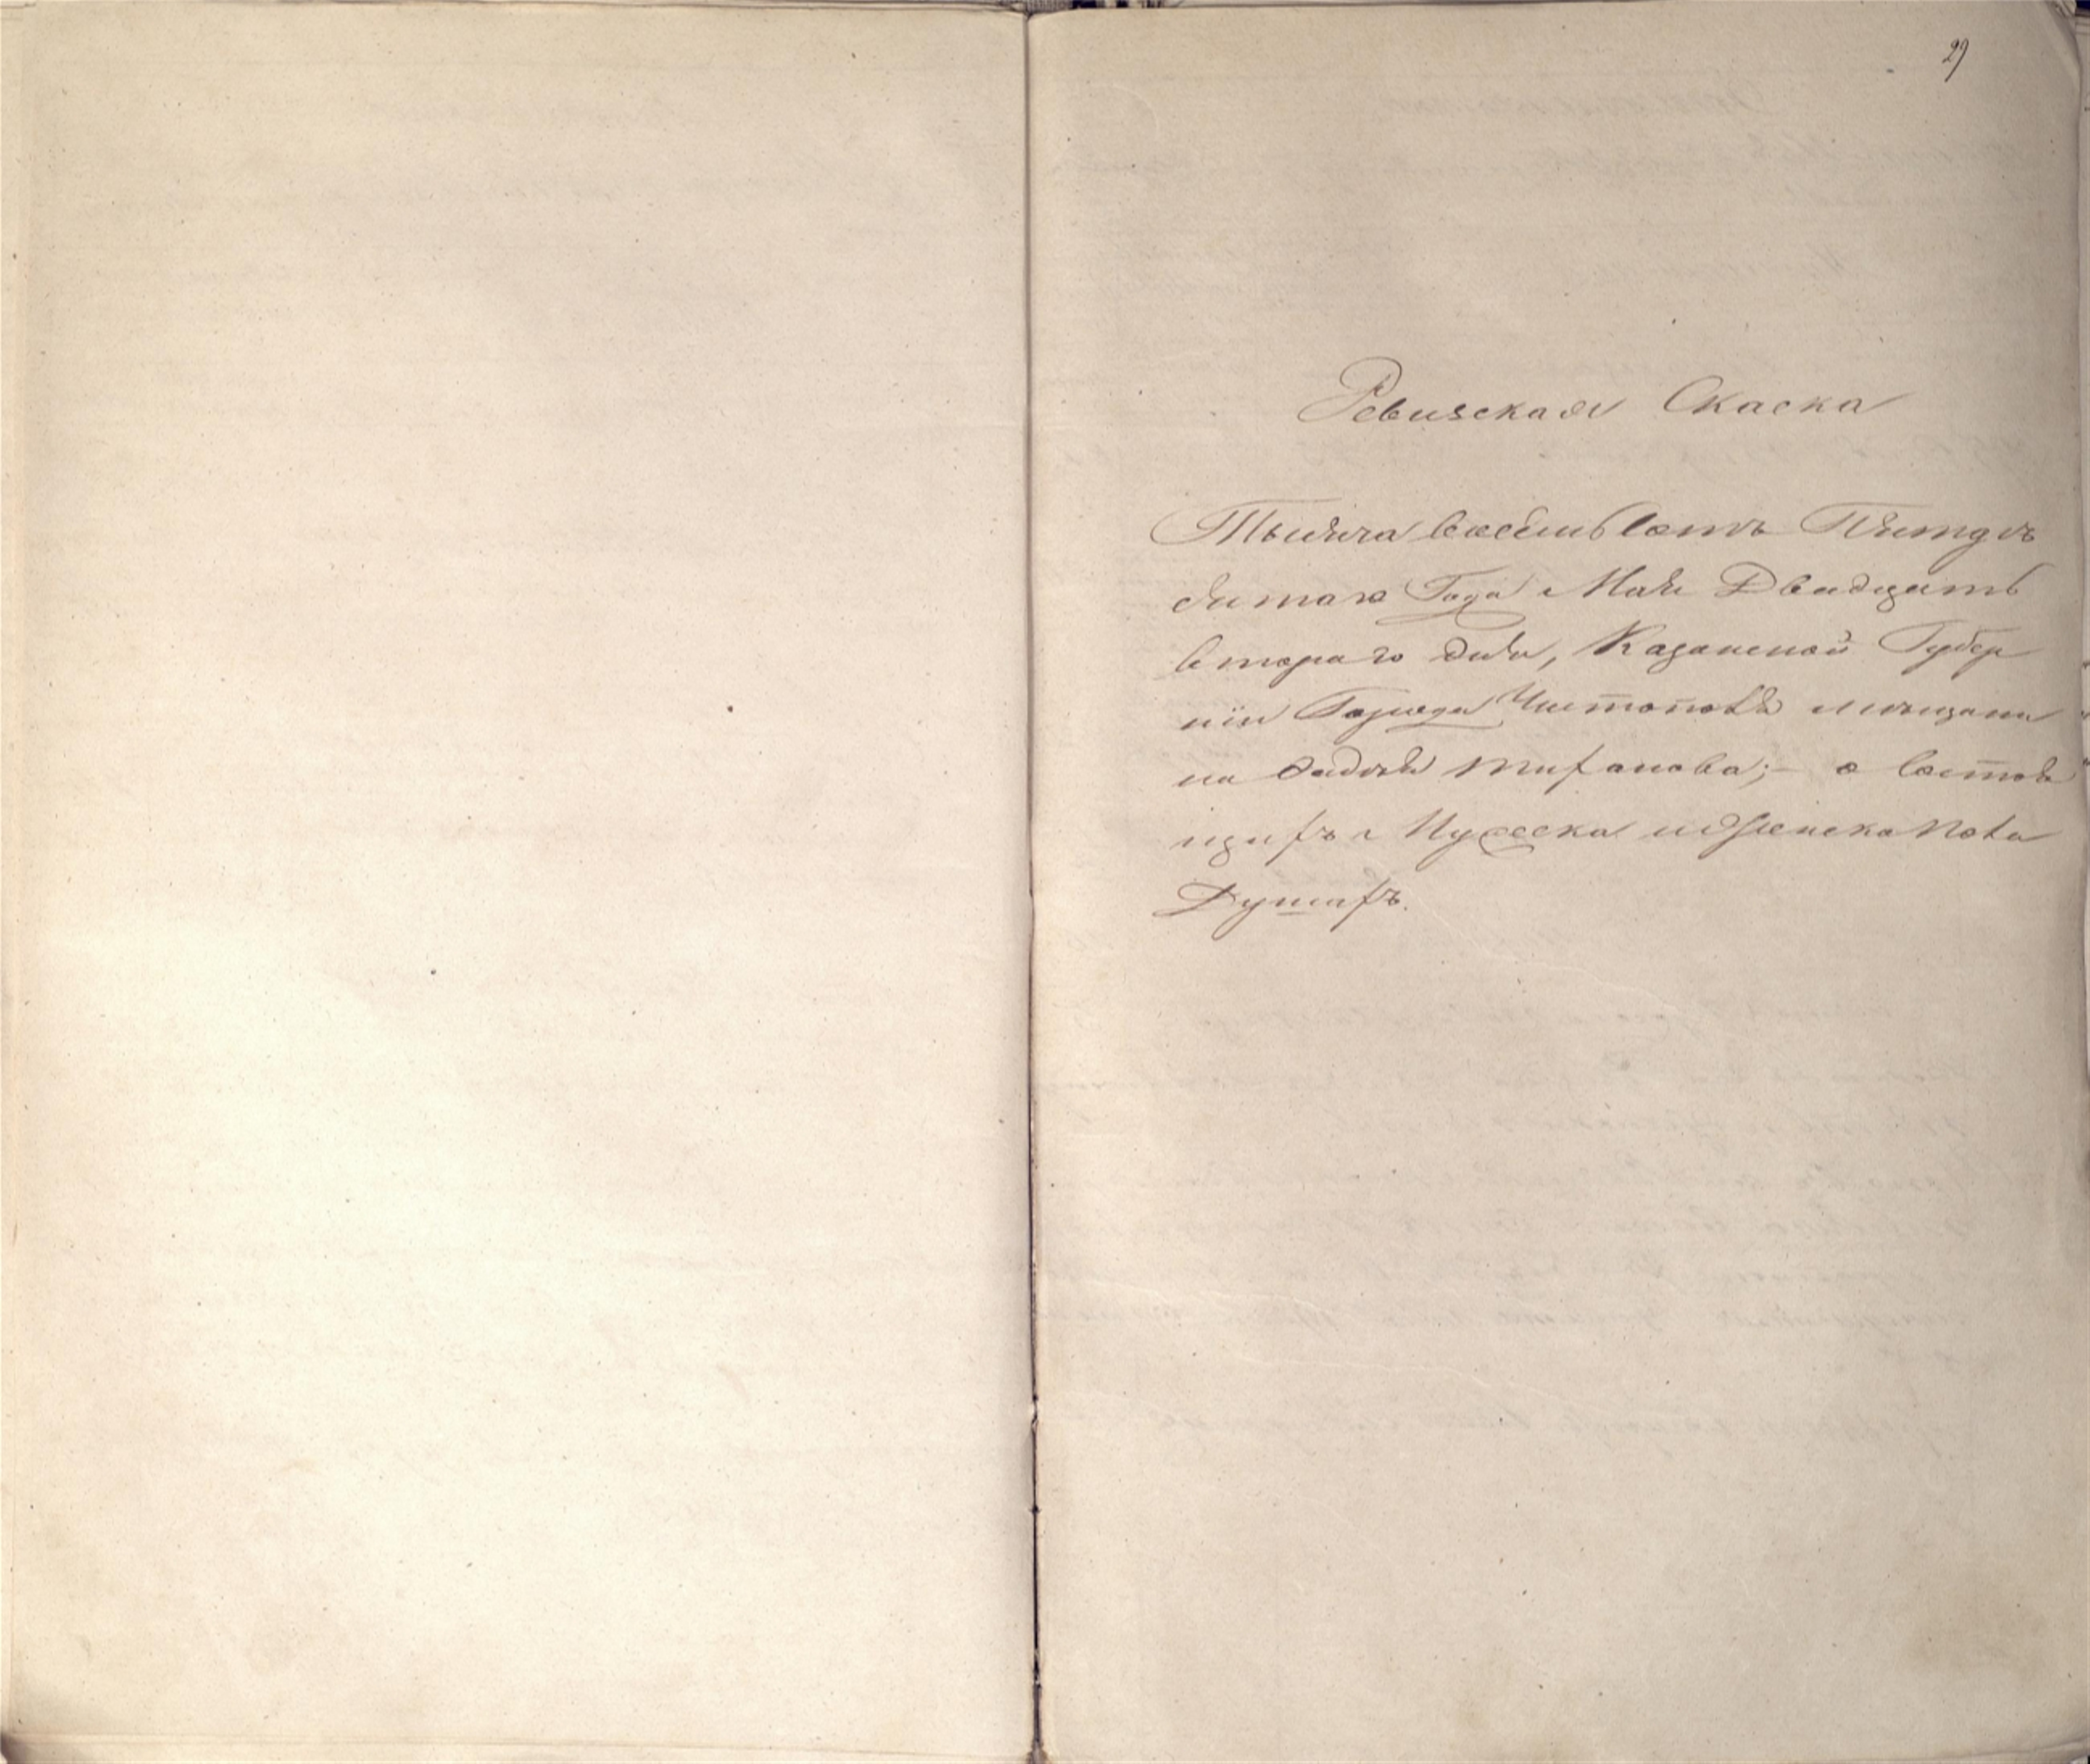 29
Ревизская Скаска
Тысяча восемь сотъ Пятдѣ
сятаго Года Мая Двадцать
втораго дня, Казанской Губер
нiи Города Чистополя мѣщани
на Тифанова; о состоя
щихъ Мужеска и Женска Пола
Душахъ.